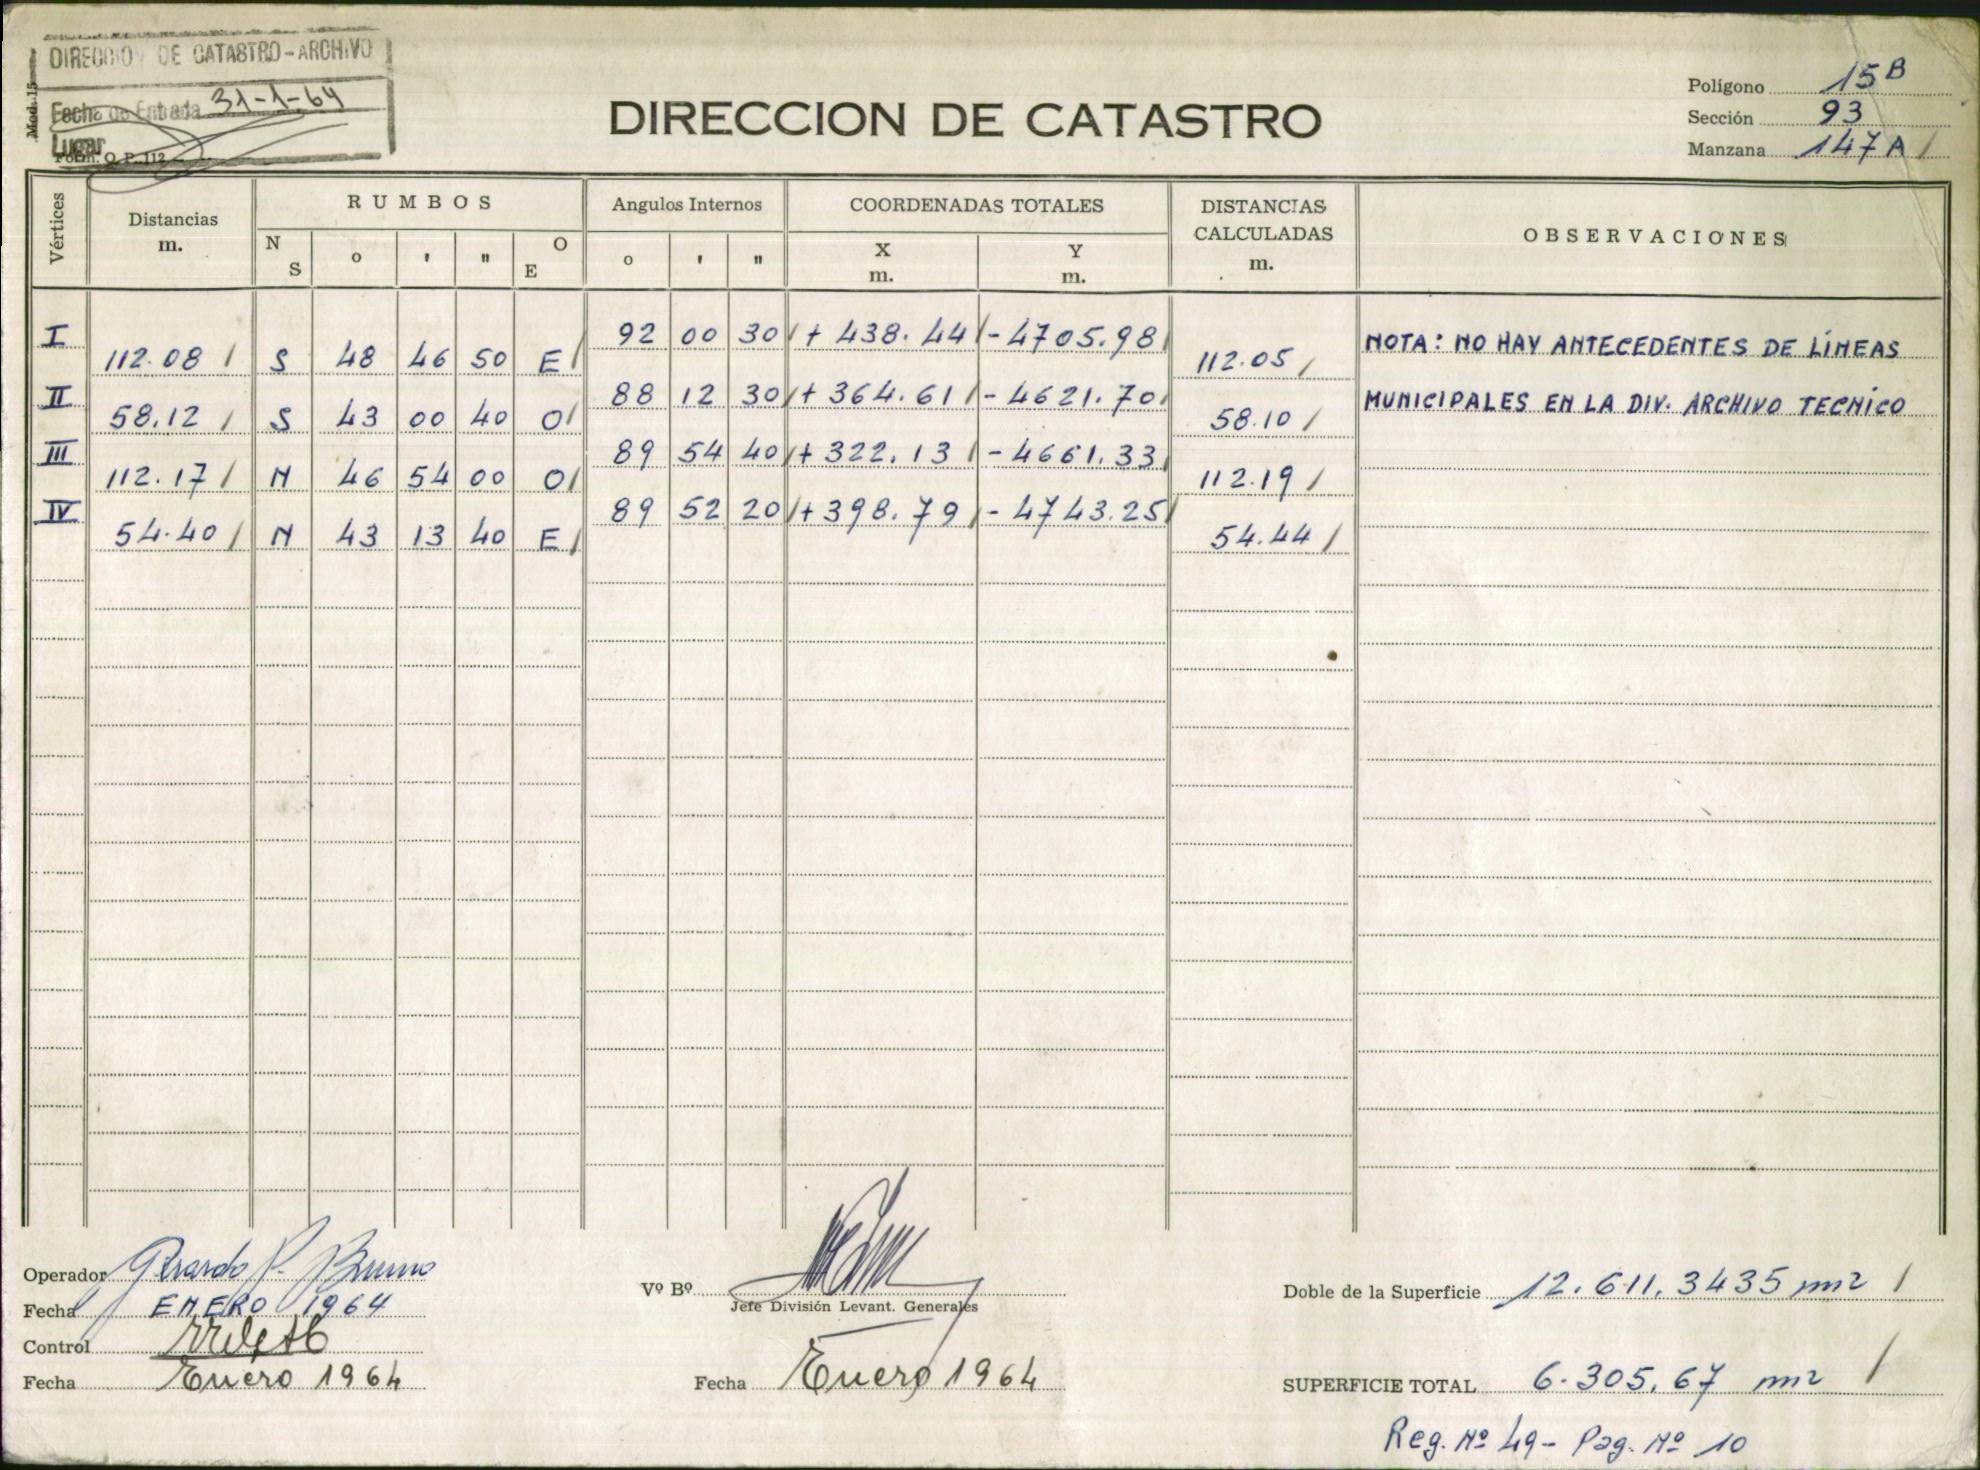 DIRECCION DE CATASTRO-ARCHIVO
Mod. 15
Fecha de Entrada 31-1-64
Lugar
Form. O. P. 112
DIRECCION DE CATASTRO
Polígono 15 B
Sección 93
Manzana 147 A /
Vértices
Distancias m.
RUMBOS
N S
° ' "
O E
Angulos Internos
° ' "
COORDENADAS TOTALES
X m.
Y m.
DISTANCIAS CALCULADAS m.
OBSERVACIONES
I 92 00 30 / + 438.44 / - 4705.98 /
112.08 / S 48 46 50 E / 112.05 /
II 88 12 30 / + 364.61 / - 4621.70 /
58.12 / S 43 00 40 O / 58.10 /
III 89 54 40 / + 322.13 / - 4661.33 /
112.17 / N 46 54 00 O / 112.19 /
IV 89 52 20 / + 398.79 / - 4743.25 /
54.40 / N 43 13 40 E / 54.44 /
NOTA: NO HAY ANTECEDENTES DE LÍNEAS
MUNICIPALES EN LA DIV. ARCHIVO TECNICO
Operador Gerardo P. Bruno
Fecha ENERO 1964
Control
Fecha Enero 1964
Vº Bº
Jefe División Levant. Generales
Fecha Enero 1964
Doble de la Superficie 12.611,3435 m2 /
SUPERFICIE TOTAL 6.305,67 m2 /
Reg. Nº 49 - Pag. Nº 10